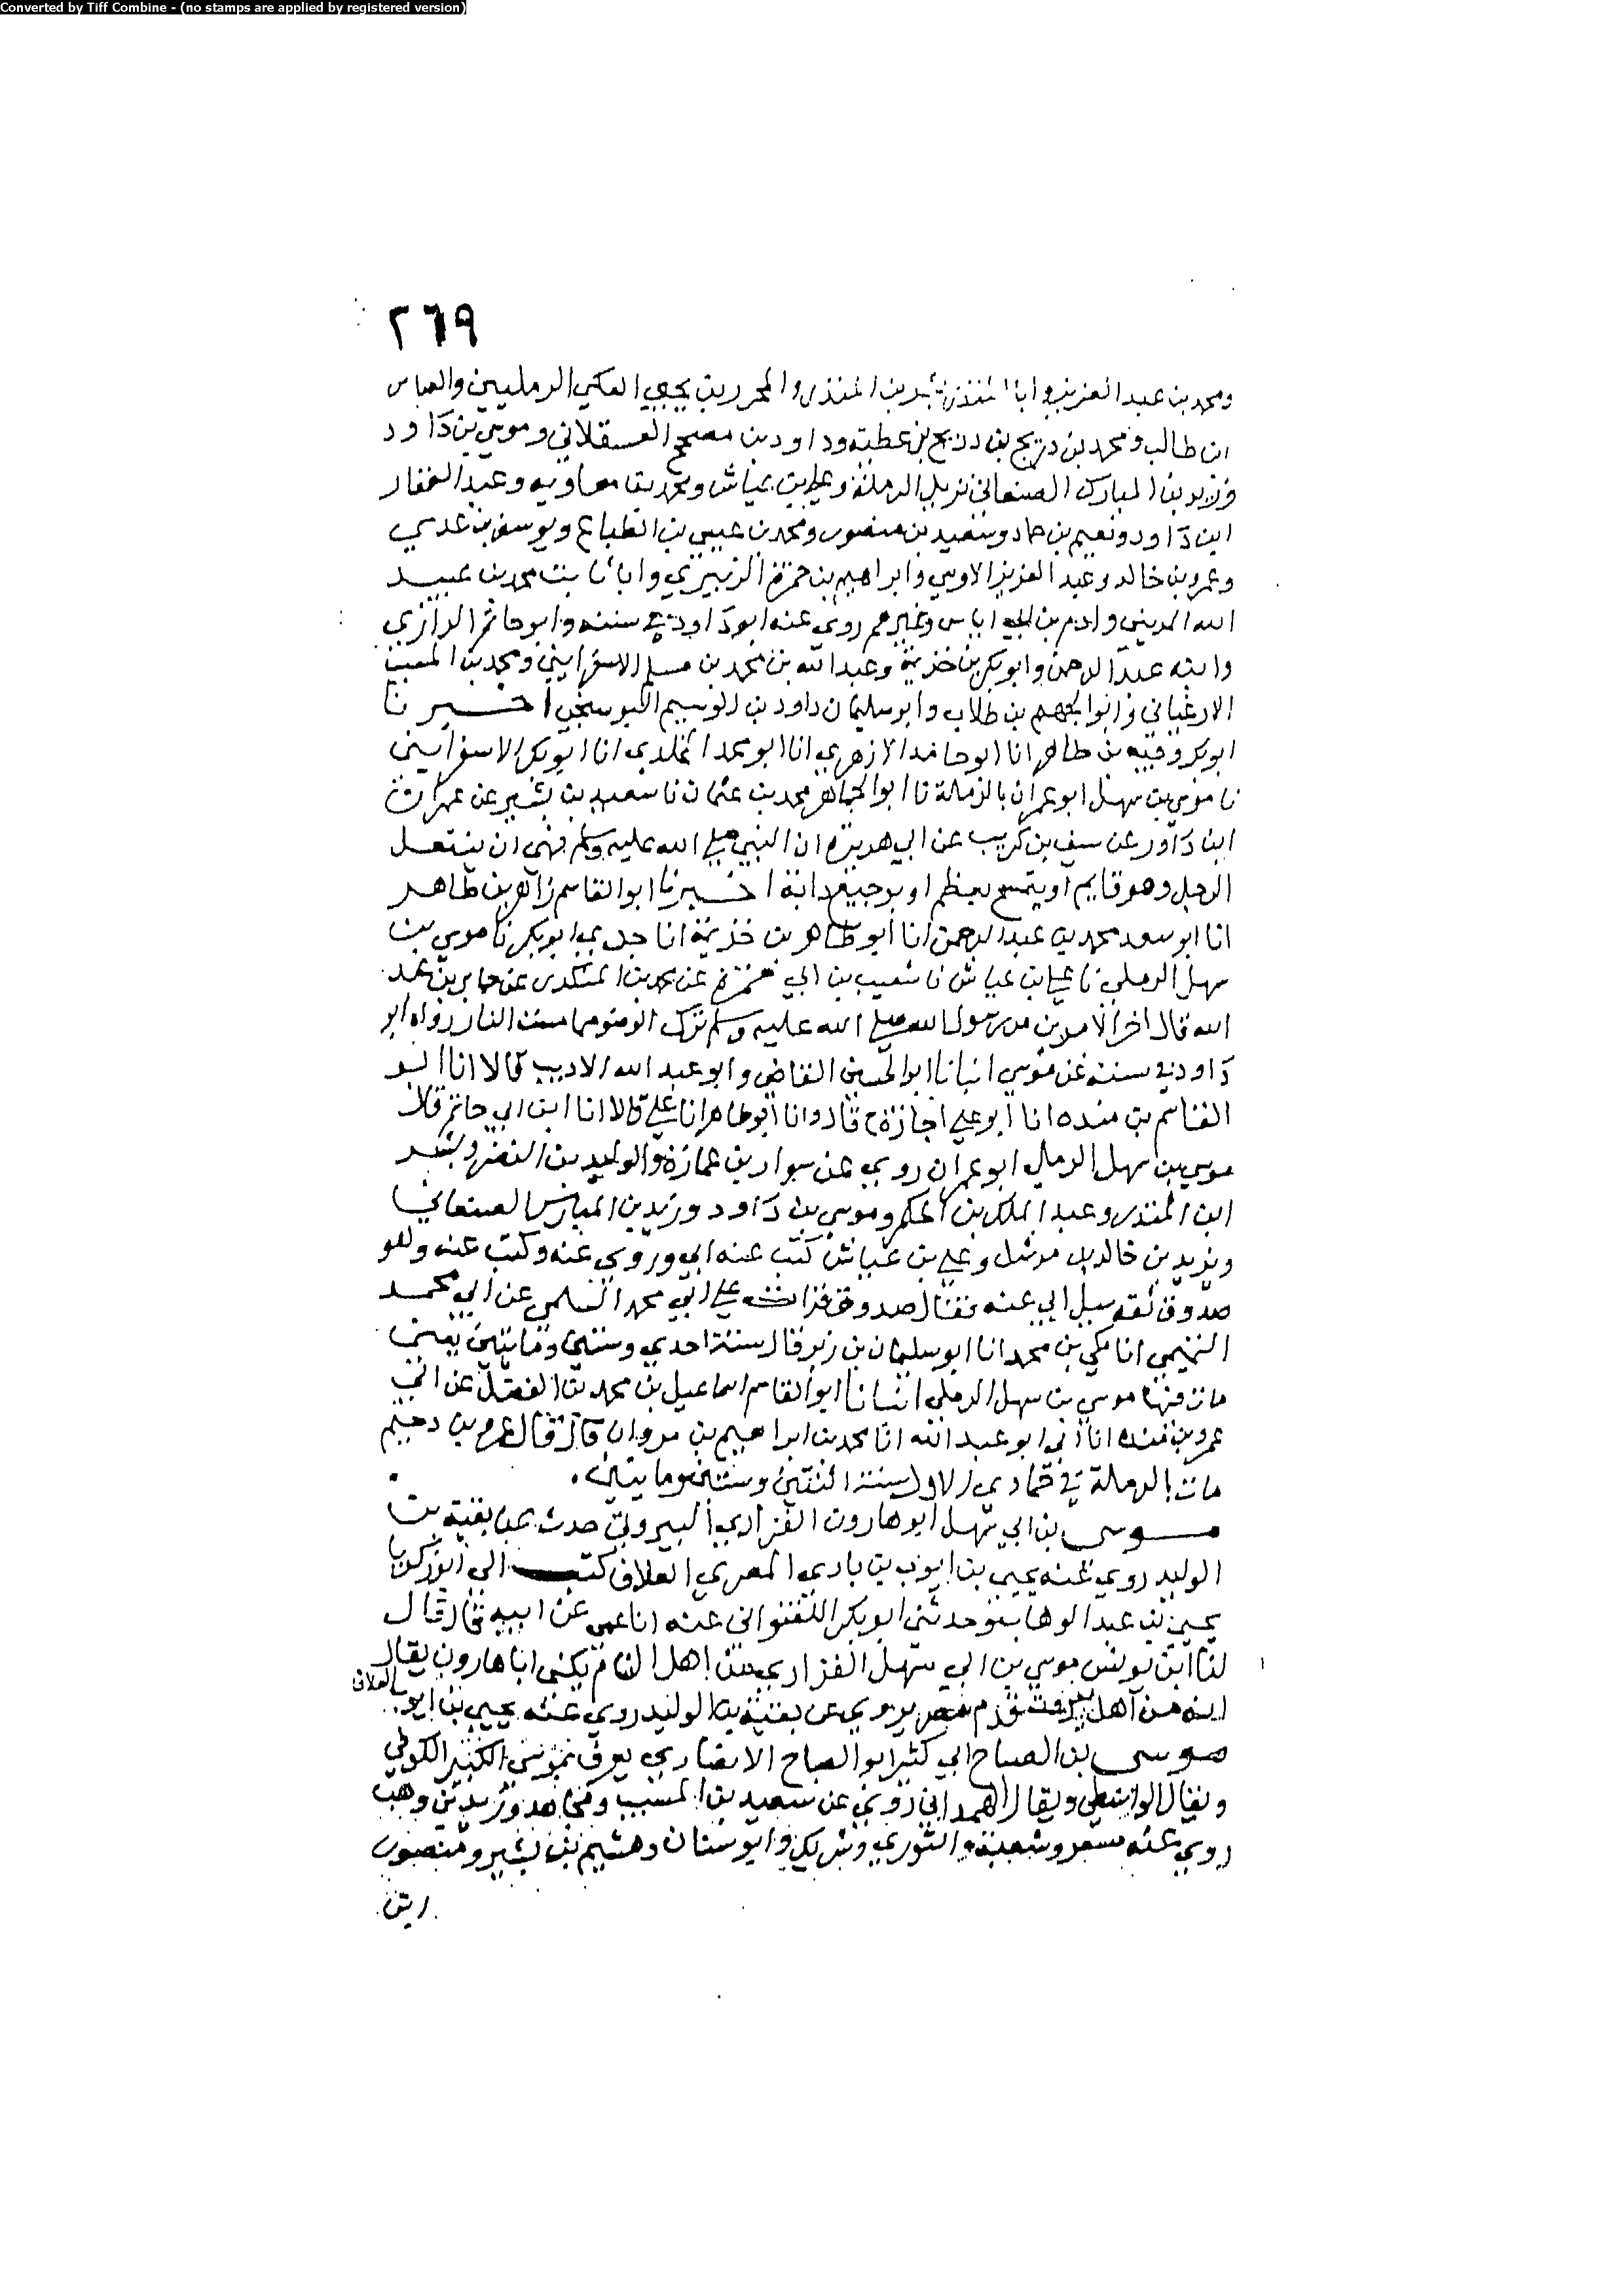 Converted by Tiff Combine - (no stamps are applied by registered version)
٢٦٩
ومحمد بن عبد العزيز وابا المنذر بشر بن المنذر والمحرر بن يحيى العكي الرمليين والعباس
ابن طالب ومحمد بن دريج بن دريج بن عطية وداود بن مصحح العسقلاني وموسى بن داود
وزيد بن المبارك الصنعاني نزيل الرملة وعلي بن عياش ومحمد بن معاويه وعبد الغفار
ابن داود ونعيم بن حماد وسعيد بن منصور ومحمد بن عيسى بن الطباع ويوسف بن عدي
وعمرو بن خالد وعبد العزيز الاويسي وابراهيم بن حمزة الزبيري وابا ثابت محمد بن عبيد
الله المديني وادم بن ابي اياس وغيرهم روى عنه ابو داود في سننه وابو حاتم الرازي
وابنه عبد الرحمن وابو بكر بن خزيمة وعبد الله بن محمد بن مسلم الاسفرايني ومحمد بن المسيب
الارغياني وابو الجهم بن طلاب وابو سليمان داود بن الوسيم البوسنجي اخبرنا
ابو بكر وجيه بن طاهر انا ابو حامد الازهري انا ابو محمد المخلدي انا ابو بكر الاسفرايني
نا موسى بن سهل ابو عمران بالرملة نا ابو الجماهر محمد بن عثمان نا سعيد بن بشير عن عمران
ابن داور عن سيف بن كريب عن ابي هريرة ان النبي صلى الله عليه وسلم نهى ان ينتعل
الرجل وهو قايم او يتمسح بعظم او برجيع دابة اخبرنا ابو القاسم زاهر بن طاهر
انا ابو سعد محمد بن عبد الرحمن انا ابو طاهر بن خزيمة انا جدي ابو بكر نا موسى بن
سهل الرملي نا علي بن عياش نا شعيب بن ابي حمزة عن محمد بن المنكدر عن جابر بن عبد
الله قال اخر الامرين من رسول الله صلى الله عليه وسلم ترك الوضو مما مست النار رواه ابو
داود في سننه عن موسى انبانا ابو الحسين القاضي وابو عبد الله الاديب قالا انا ابو
القاسم بن منده انا ابو علي اجازة ح قال وانا ابو طاهر انا علي قالا انا ابن ابي حاتم قال
موسى بن سهل الرملي ابو عمران روى عن سوار بن عمارة والوليد بن النضر وبشر
ابن المنذر وعبد الملك بن الحكم وموسى بن داود وزيد بن المبارك الصنعاني
ويزيد بن خالد بن مرشل وعلي بن عياش كتب عنه ابي وروى عنه وكتب عنه وهو
صدوق ثقه سيل ابي عنه فقال صدوق قرات على ابي محمد السلمي عن ابي محمد
التميمي انا مكي بن محمد انا ابو سليمان بن زبر قال سنة احدى وستين ومايتين يعني
مات فيها موسى بن سهل الرملي انبانا ابو القاسم اسماعيل بن محمد بن الفضل عن ابي
عمرو بن منده انا ابي ابو عبد الله انا محمد بن ابراهيم بن مروان قال قال عمرو بن دحيم
مات بالرملة في جمادى الاولى سنة اثنتين وستين ومايتين.
موسى بن ابي سهل ابو هارون الفزاري البيروتي حدث عن بقية بن
الوليد روى عنه يحيى بن ايوب بن بادي المصري العلاف كتب الي ابو زكريا
يحيى بن عبد الوهاب وحدثني ابو بكر اللفتواني عنه انا عمي عن ابيه قال قال
لنا ابن يونس موسى بن ابي سهل الفزاري من اهل الشام يكنى ابا هارون يقال
انه من اهل بيروت قدم مصر يروي عن بقية بن الوليد روى عنه يحيى بن ايوب العلاف
موسى بن الصباح ابي كثير ابو الصباح الانصاري يعرف بموسى الكبير الكوفي
ويقال الواسطي ويقال الهمداني روى عن سعيد بن المسيب ومجاهد وزيد بن وهب
روى عنه مسعر وشعبة والثوري وشريك وابو سنان وهشيم بن بشير ومنصور
ابن